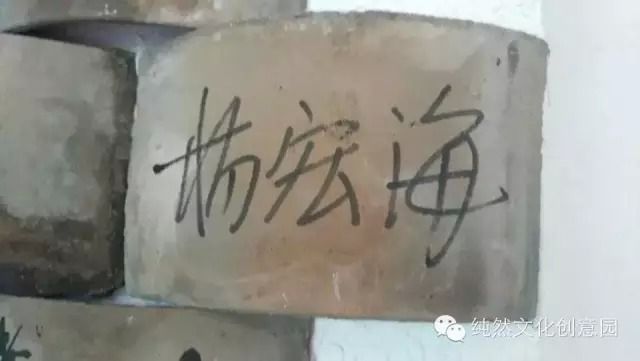 杨宏海
纯然文化创意园